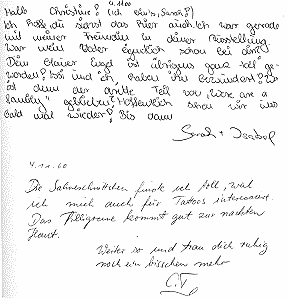 Hallo Christine! (ich bin's, Sarah!) 4.11.00
Ich hoffe, du siehst das hier auch! Ich war gerade
mit meiner Freundin in deiner Ausstellung
War mein Vater eigentlich schon bei dir?
Dein blauer Engel ist übrigens ganz toll ge-
worden! Isi und ich haben ihn bewundert! Wo
ist denn der dritte Teil von "We are a
family" geblieben? Hoffentlich sehen wir uns
bald mal wieder! Bis dann
Sarah + Isabel
4.11.00
Die Sahneschnittchen finde ich toll, weil
ich mich auch für Tattoos interessiere.
Das Filligrane kommt gut zur nackten
Haut.
Weiter so und trau dich ruhig
noch ein bisschen mehr